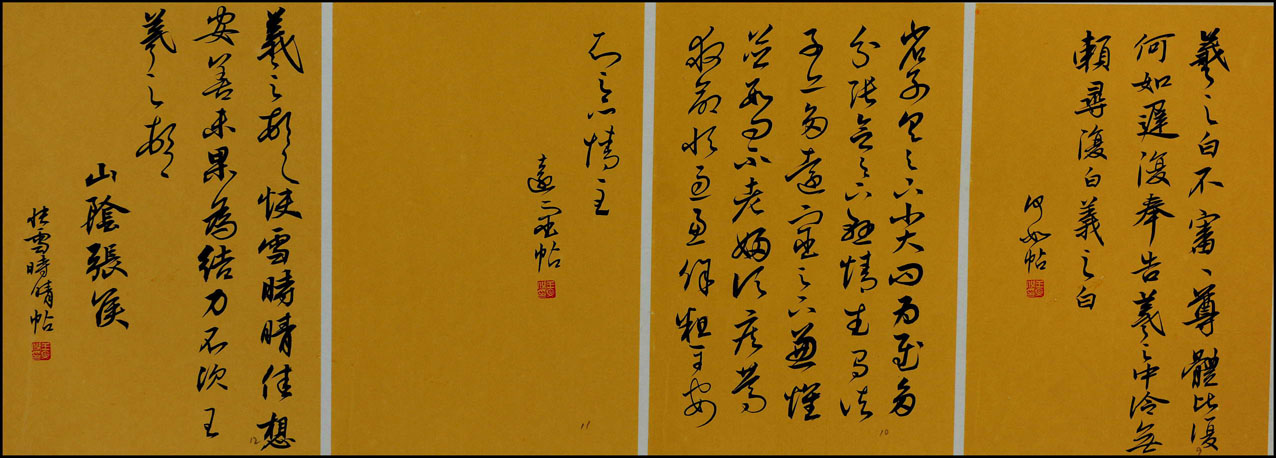 羲之白不審、尊體比復
何如遲復奉告羲之中冷無
賴尋復白羲之白
何如帖
9
省別具足下小大問為慰多
分張念足下懸情武昌諸
子亦多遠宦足下兼懷
並數問不老婦頃疾篤
救命恒憂慮餘粗平安
10
知足下情至
遠宦帖
11
羲之頓首快雪時晴佳想
安善未果為結力不次王
羲之頓首
山陰張侯
快雪時晴帖
12